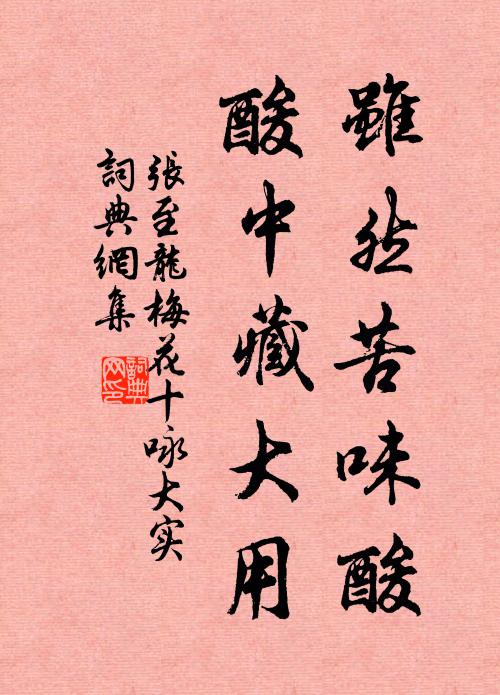 雖然苦味酸
酸中藏大用
張至龍梅花十咏大实
詞典網集
詞典
网印